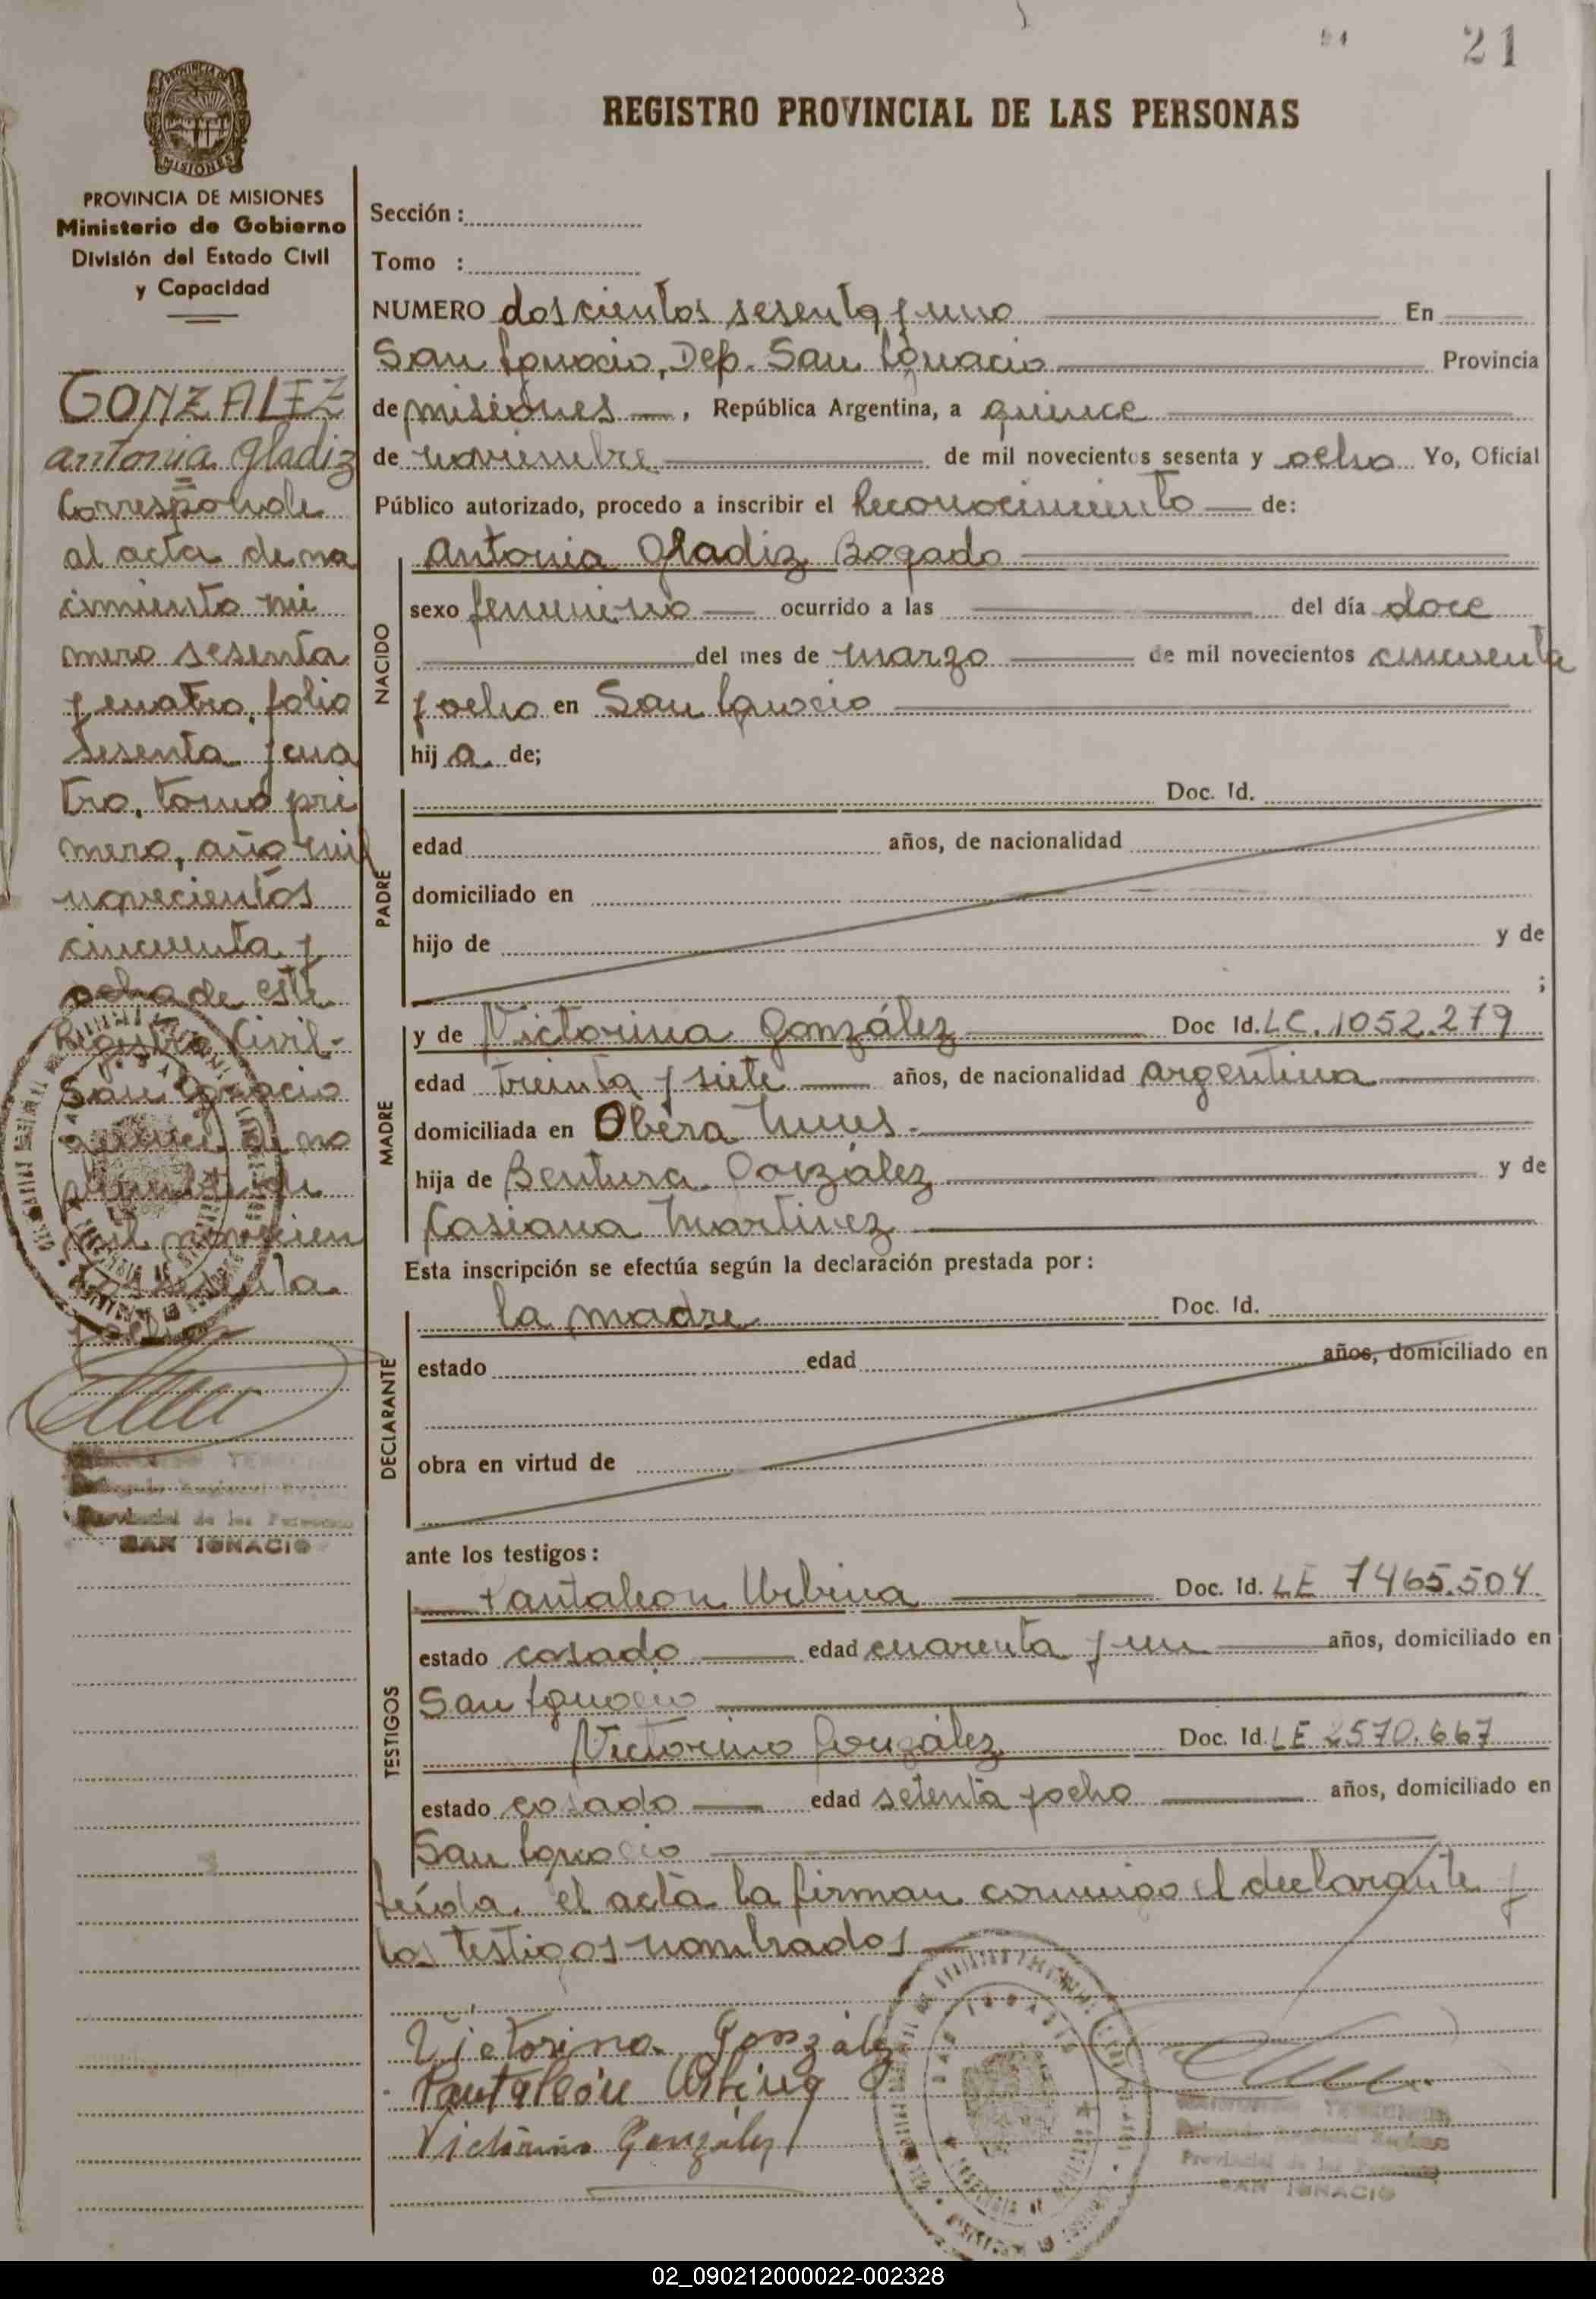 21
REGISTRO PROVINCIAL DE LAS PERSONAS
MISIONES
PROVINCIA DE MISIONES
Ministerio de Gobierno
División del Estado Civil
y Capacidad
GONZALEZ
Antonia Gladiz
Corresponde
al acta de na
cimiento nú
mero sesenta
y cuatro, folio
sesenta y cua
tro, tomo pri
mero, año mil
novecientos
cincuenta y
ocho de este
Registro Civil-
San Ignacio
quince de no
viembre de
mil novecien
tos sesenta
y ocho
Provincial de las Personas
SAN IGNACIO
Sección :
Tomo :
NUMERO doscientos sesenta y uno En
San Ignacio, Dep. San Ignacio Provincia
de misiones , República Argentina, a quince
de noviembre de mil novecientos sesenta y ocho Yo, Oficial
Público autorizado, procedo a inscribir el Reconocimiento de:
NACIDO
Antonia Gladiz Bogado
sexo femenino ocurrido a las del día doce
del mes de marzo de mil novecientos cincuenta
y ocho en San Ignacio
hij a de;
PADRE
Doc. Id.
edad años, de nacionalidad
domiciliado en
hijo de y de
;
MADRE
y de Victorina González Doc Id. LC. 1052.279
edad treinta y siete años, de nacionalidad argentina
domiciliada en Oberá Mnes.
hija de Bentura González y de
Casiana Martinez
Esta inscripción se efectúa según la declaración prestada por :
DECLARANTE
la madre Doc. Id.
estado edad años, domiciliado en
obra en virtud de
ante los testigos :
TESTIGOS
Pantaleon Urbina Doc. Id. LE 7465.504
estado casado edad cuarenta y un años, domiciliado en
San Ignacio
Victorino González Doc. Id. LE 2570.667
estado casado edad setenta y ocho años, domiciliado en
San Ignacio
Leída el acta la firman conmigo el declarante y
los testigos nombrados
Victorina Gonzalez
Pantaleón Urbina
Victorino González
Provincial de las Personas
SAN IGNACIO
02_090212000022-002328